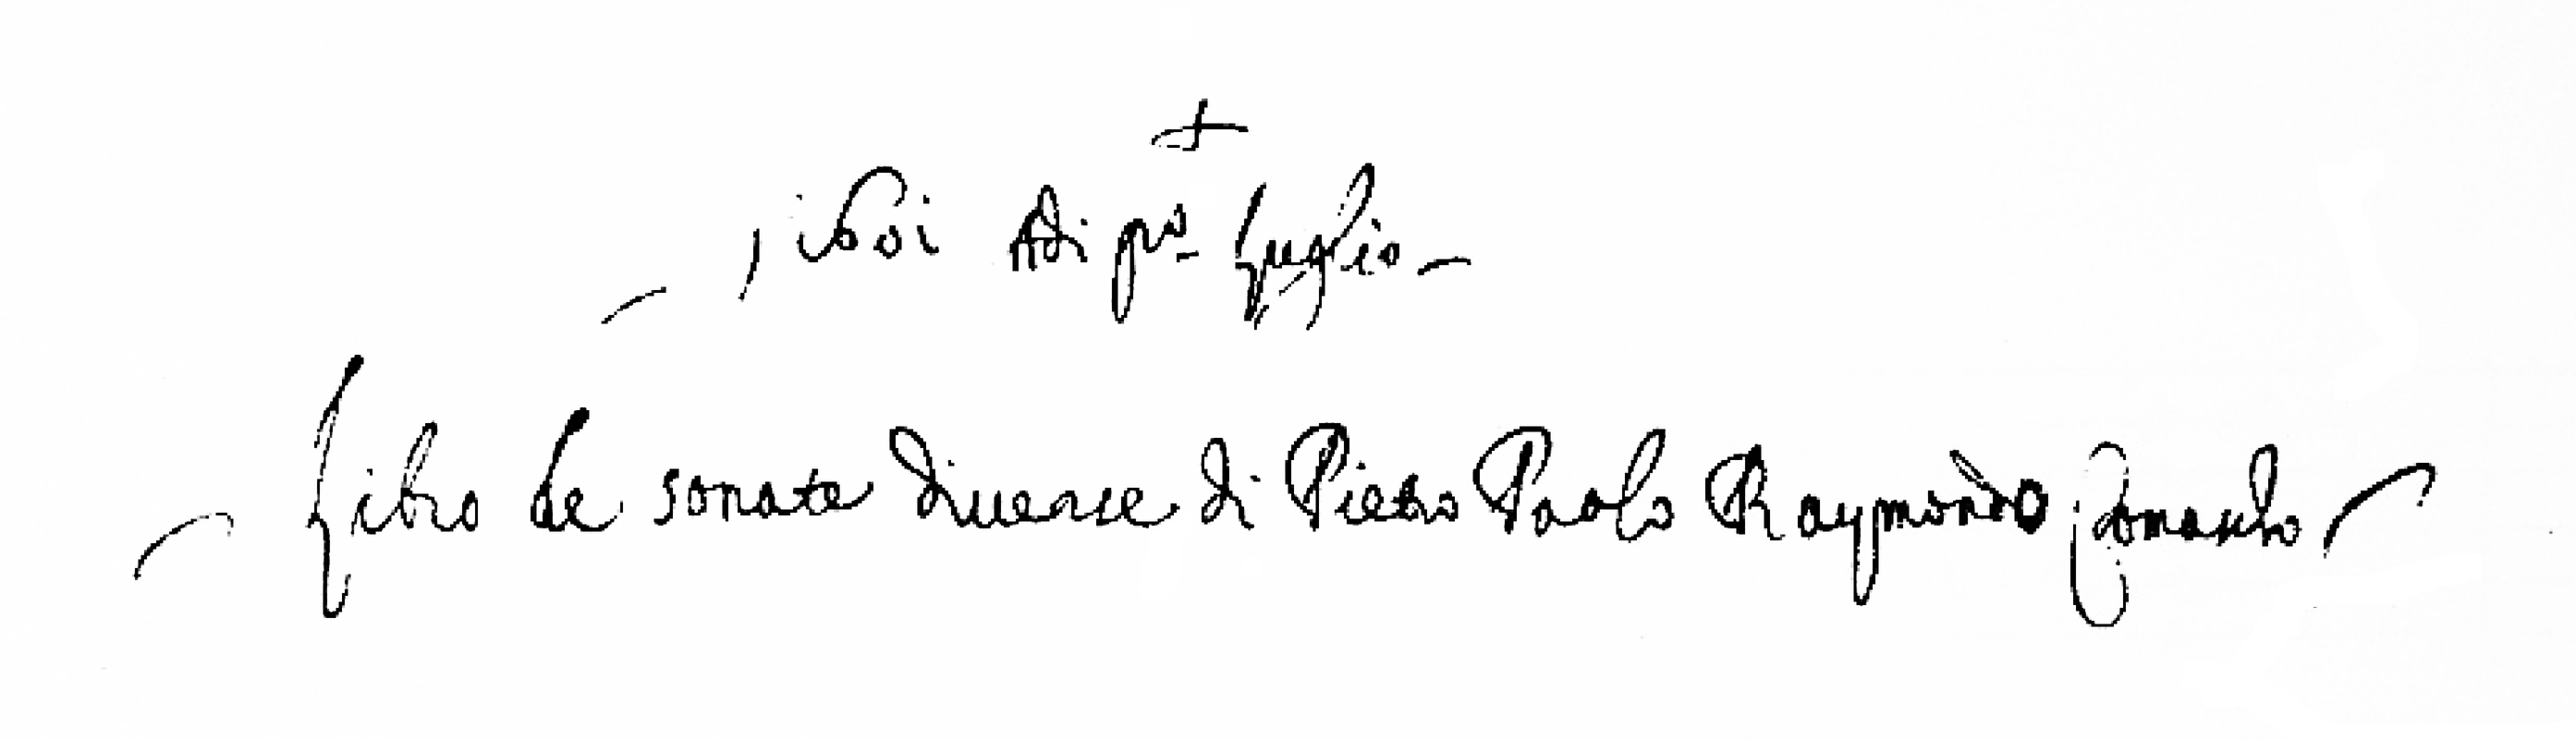 +
1601 Adi p.º Luglio
Libro de sonate diuerse di Pietro Paolo Raymondo Comascho